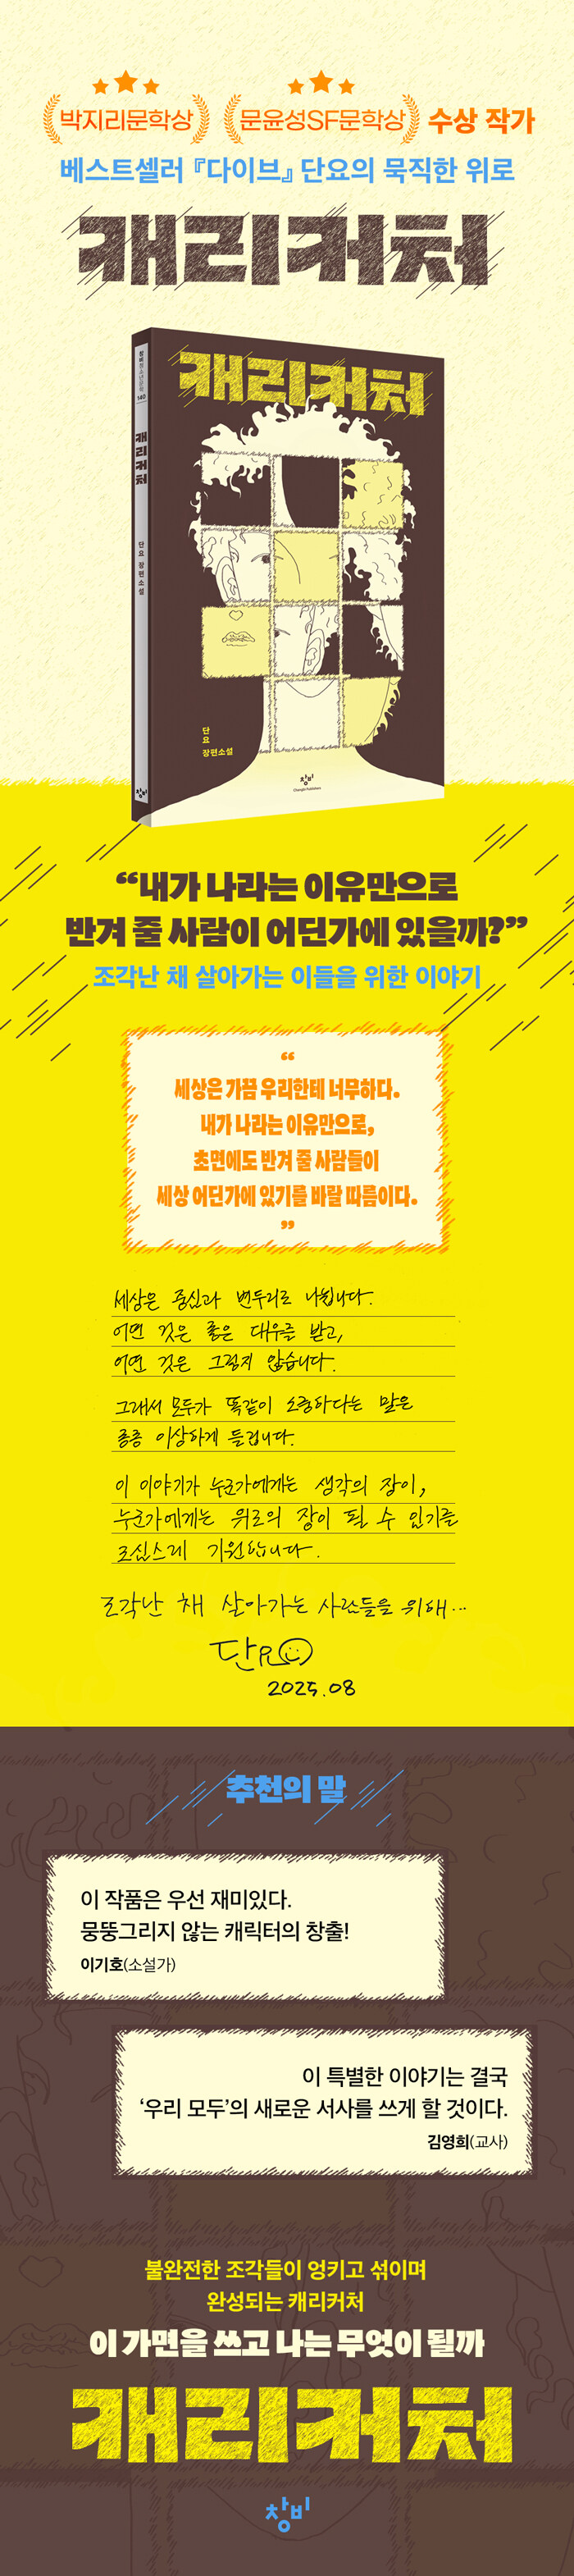 박지리문학상 문윤성SF문학상 수상 작가
베스트셀러 『다이브』 단요의 묵직한 위로
캐리커처
창비청소년문학
140
캐리커처
단요 장편소설
창비
캐리커처
단요
장편소설
창비
Changbi Publishers
“내가 나라는 이유만으로
반겨 줄 사람이 어딘가에 있을까?”
조각난 채 살아가는 이들을 위한 이야기
“
세상은 가끔 우리한테 너무하다.
내가 나라는 이유만으로,
초면에도 반겨 줄 사람들이
세상 어딘가에 있기를 바랄 따름이다.
”
세상은 중심과 변두리로 나뉩니다.
어떤 것은 좋은 대우를 받고,
어떤 것은 그렇지 않습니다.
그래서 모두가 똑같이 소중하다는 말은
종종 이상하게 들립니다.
이 이야기가 누군가에게는 생각의 장이,
누군가에게는 위로의 장이 될 수 있기를
조심스레 기원합니다.
조각난 채 살아가는 사람들을 위해...
단요
2025.08
추천의 말
이 작품은 우선 재미있다.
뭉뚱그리지 않는 캐릭터의 창출!
이기호(소설가)
이 특별한 이야기는 결국
‘우리 모두’의 새로운 서사를 쓰게 할 것이다.
김영희(교사)
불완전한 조각들이 엉키고 섞이며
완성되는 캐리커처
이 가면을 쓰고 나는 무엇이 될까
캐리커처
창비